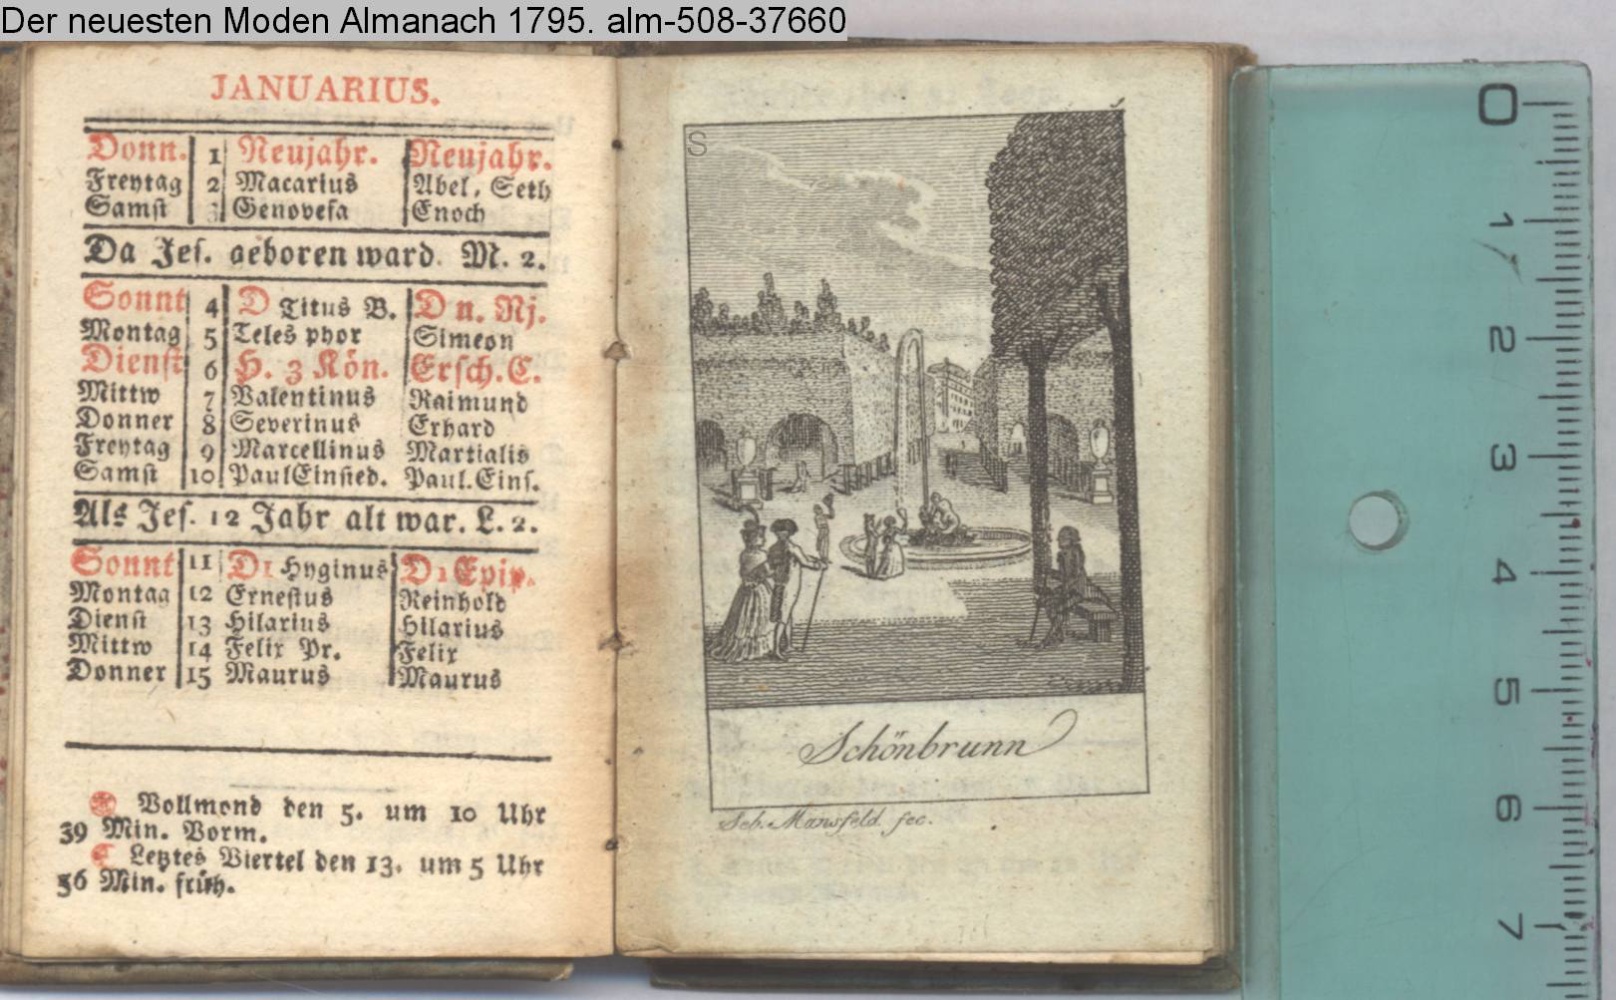 Der neuesten Moden Almanach 1795. alm-508-37660
JANUARIUS.
Donn. 1 Neujahr. Neujahr.
Freytag 2 Macarius Abel, Seth
Samst 3 Genovefa Enoch
Da Jes. geboren ward. M. 2.
Sonnt 4 D Titus B. D n. Nj.
Montag 5 Telesphor Simeon
Dienst 6 H. 3 Kön. Ersch. C.
Mittw 7 Valentinus Raimund
Donner 8 Severinus Erhard
Freytag 9 Marcellinus Martialis
Samst 10 Paul Einsied. Paul. Eins.
Als Jes. 12 Jahr alt war. L. 2.
Sonnt 11 D1 Hyginus D1 Epip.
Montag 12 Ernestus Reinhold
Dienst 13 Hilarius Hilarius
Mittw 14 Felix Pr. Felix
Donner 15 Maurus Maurus
Vollmond den 5. um 10 Uhr
39 Min. Vorm.
Letztes Viertel den 13. um 5 Uhr
56 Min. früh.
S
Schönbrunn
Seb. Mansfeld fec.
0
1
2
3
4
5
6
7